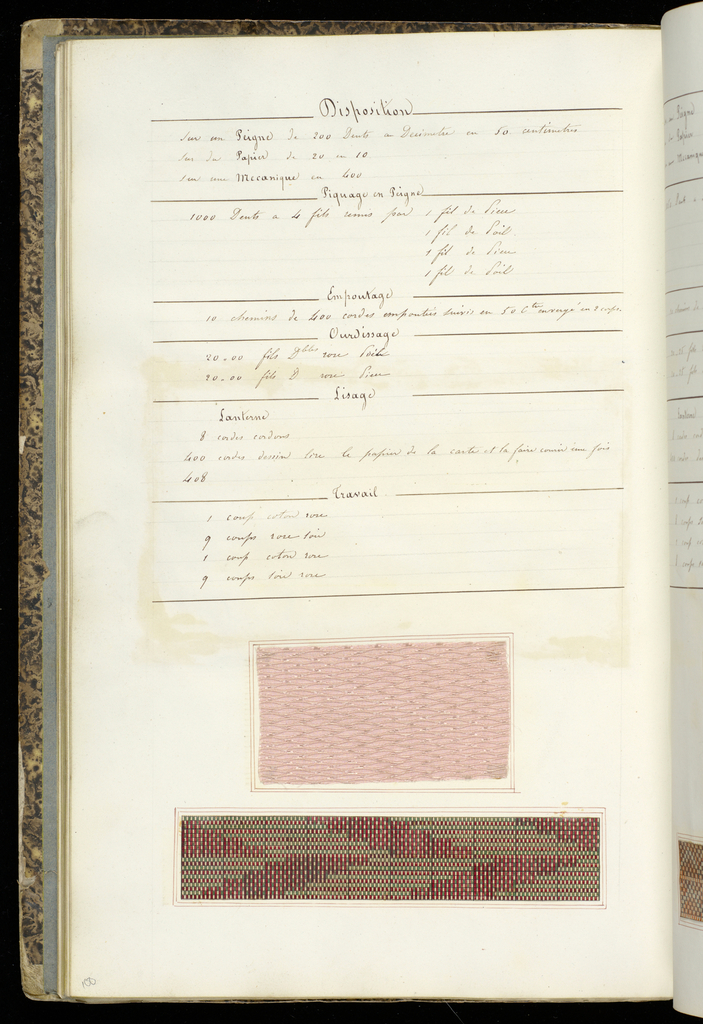 Disposition
Sur un Peigne de 200 Dents au Decimetre en 50 centimetres
Sur du Papier de 20 en 10
Sur une Mecanique en 400
Piquage en Peigne
1000 Dents a 4 fils remis par 1 fil de Piece
1 fil de Poil
1 fil de Piece
1 fil de Poil
Empoutage
10 chemins de 400 cordes empoutés suivis en 50 Cte envergé en 2 corps
Ourdissage
20.00 fils Dbles rose Poil
20.00 fils D rose Piece
Lisage
Lanterne
8 cordes cordons
400 cordes dessin lire le papier de la carte et la faire courir une fois
408
Travail
1 coup coton rose
9 coups rose soie
1 coup coton rose
9 coups soie rose
100